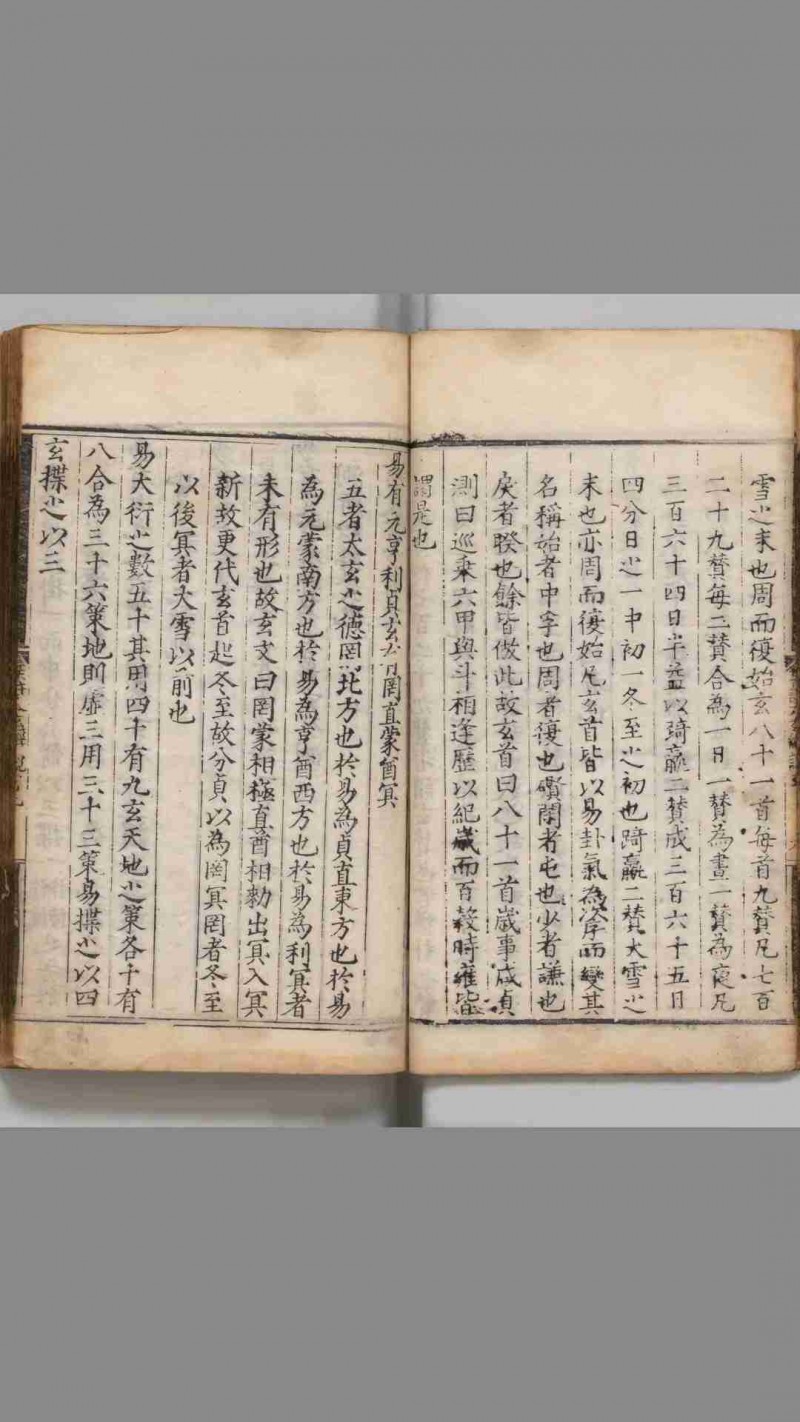 雪之末也周而復始玄八十一首每首九賛凡七百
二十九賛每二賛合為一日一賛為晝一賛為夜凡
三百六十四日半益以踦羸二賛成三百六十五日
四分日之一中初一冬至之初也踦羸二賛大雪之
末也亦周而復始凡玄首皆以易卦氣為次序而變其
名稱始者中孚也周者復也礥閑者屯也少者謙也
戾者睽也餘皆倣此故玄首曰八十一首歲事咸貞
測曰巡乗六甲與斗相逢歷以紀歲而百穀時雍皆
謂是也
易有元亨利貞玄有罔直蒙酋冥
五者太玄之德罔北方也於易為貞直東方也於易
為元蒙南方也於易為亨酋西方也於易為利冥者
未有形也故玄文曰罔蒙相極直酋相勑出冥入冥
新故更代玄首起冬至故分貞以為罔冥罔者冬至
以後冥者大雪以前也
易大衍之數五十其用四十有九玄天地之策各十有
八合為三十六策地則虛三用三十三策易揲之以四
玄揲之以三